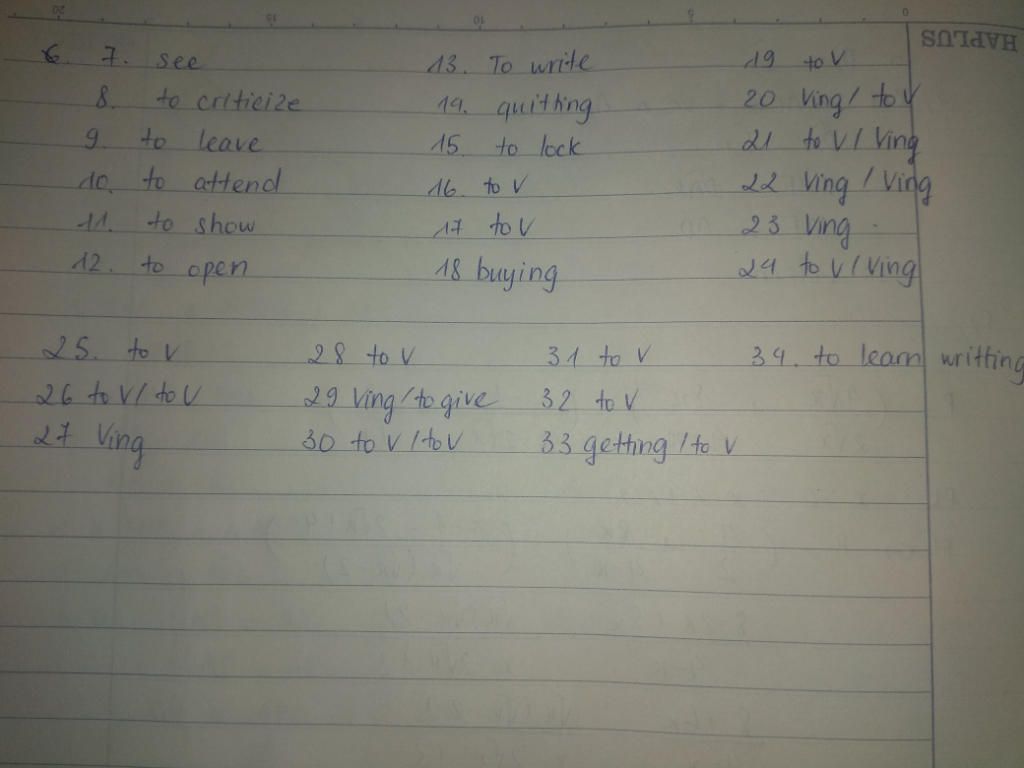 20 15 10 5 0
HAPLUS
6. 7. see 13. To write 19 to V
8. to criticize 14. quitting 20 Ving / to V
9. to leave 15. to lock 21 to V / Ving
10. to attend 16. to V 22 Ving / Ving
11. to show 17 to V 23 Ving.
12. to open 18 buying 24 to V / Ving
25. to V 28 to V 31 to V 34. to learn writting
26 to V / to V 29 Ving / to give 32 to V
27 Ving 30 to V / to V 33 getting / to V